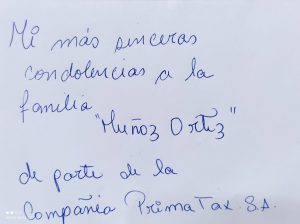 Mi más sinceras
condolencias a la
familia
"Muñoz Ortiz"
de parte de la
Compañia PrimaTax S.A.